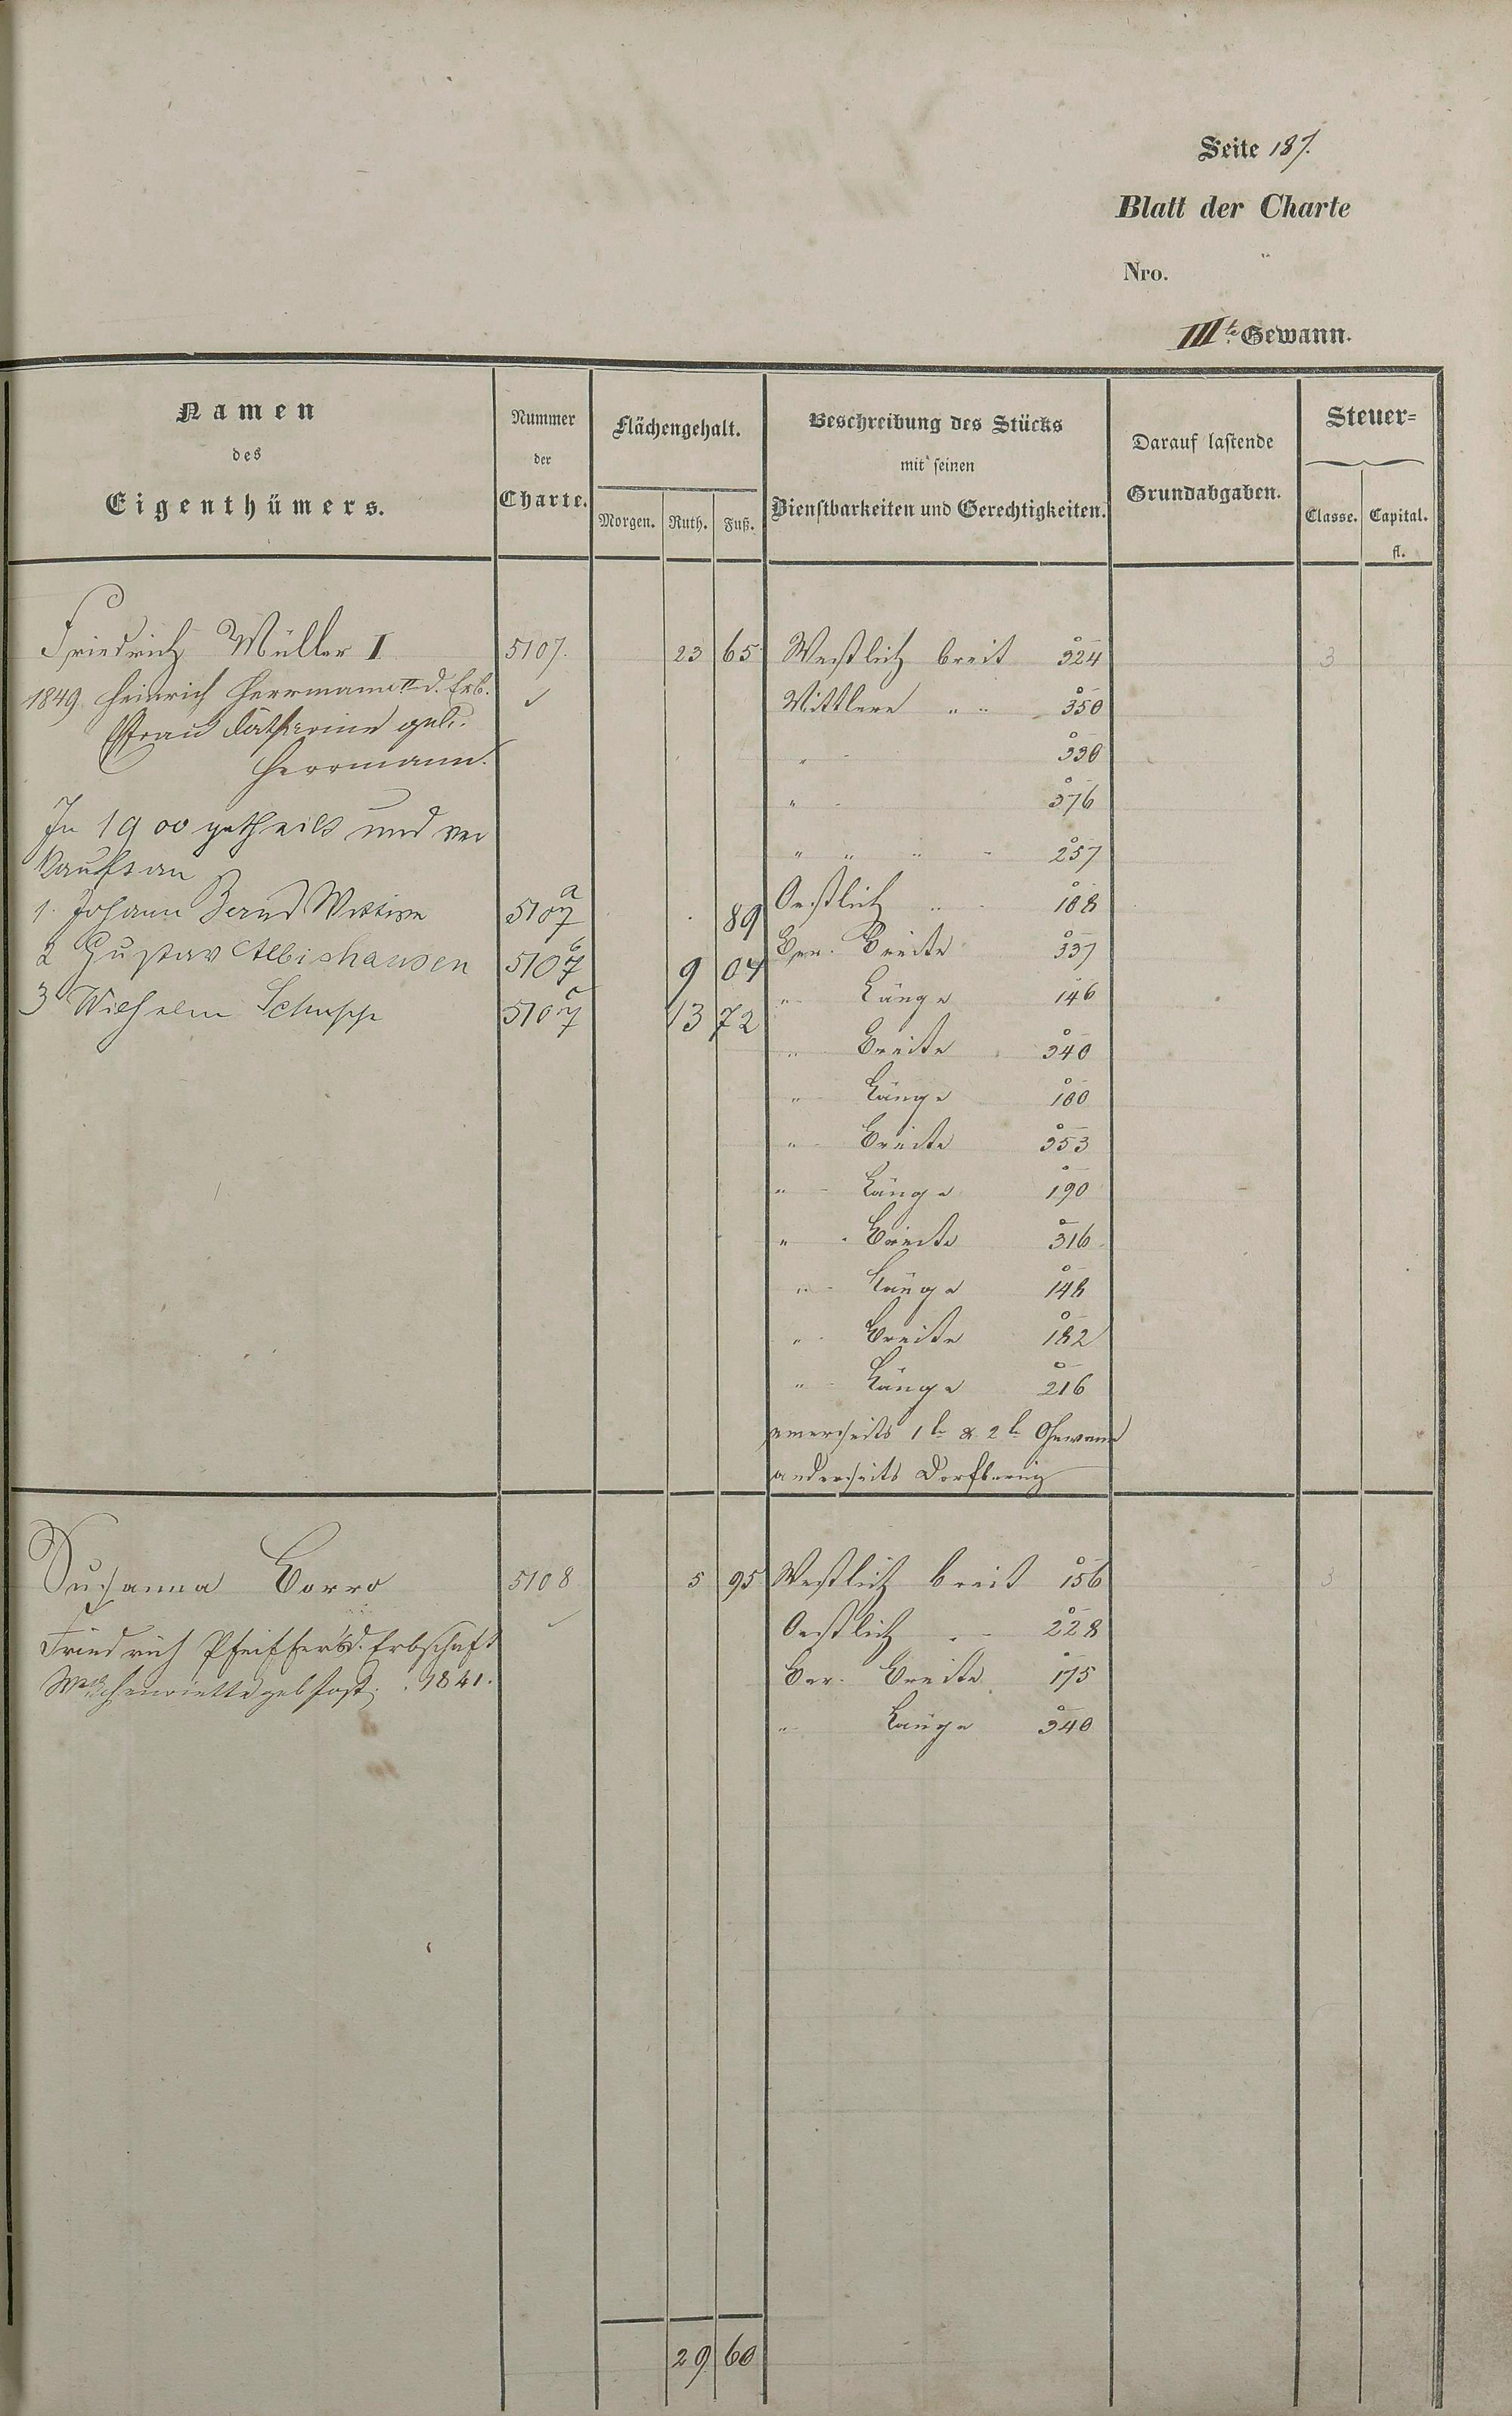 Seite 187.
Blatt der Charte
Nro.
III.te Gewann.
Namen des Eigenthümers.
Nummer der Charte.
Flächengehalt.
Morgen. Ruth. Fuß.
Beschreibung des Stücks mit seinen Dienstbarkeiten und Gerechtigkeiten.
Darauf lastende Grundabgaben.
Steuer=
Classe. Capital.
fl.
Friedrich Müller I 5107. 23 65 Westlich breit 324 3
1849 Heinrich Herrmann II d. Erb. Mittlere " " 350
Frau Catharine geb. 330
Herrmann. " 376
In 1900 getheilt und ver " " " 257
kauft an
1. Johann Bernd Wittwe 5107 a 89 Oestlich " 188
2 Gustav Albishausen 5107 b 9 04 Ber. Breite 337
3 Wilhelm Schupp 5107 c 13 72 " Länge 146
" Breite 340
" Länge 180
" Breite 353
" Länge 190
" Breite 316
" Länge 148
" Breite 182
" Länge 216
einerseits 1te & 2te Gewann
anderseits Dorfbering
Susanna Corro 5108 5 95 Westlich breit 156 3
Friedrich Pfeiffer d. Erbschaft Oestlich " 228
Henriette geb. Jost. 1841. Ber. Breite 175
" Länge 340
29 60